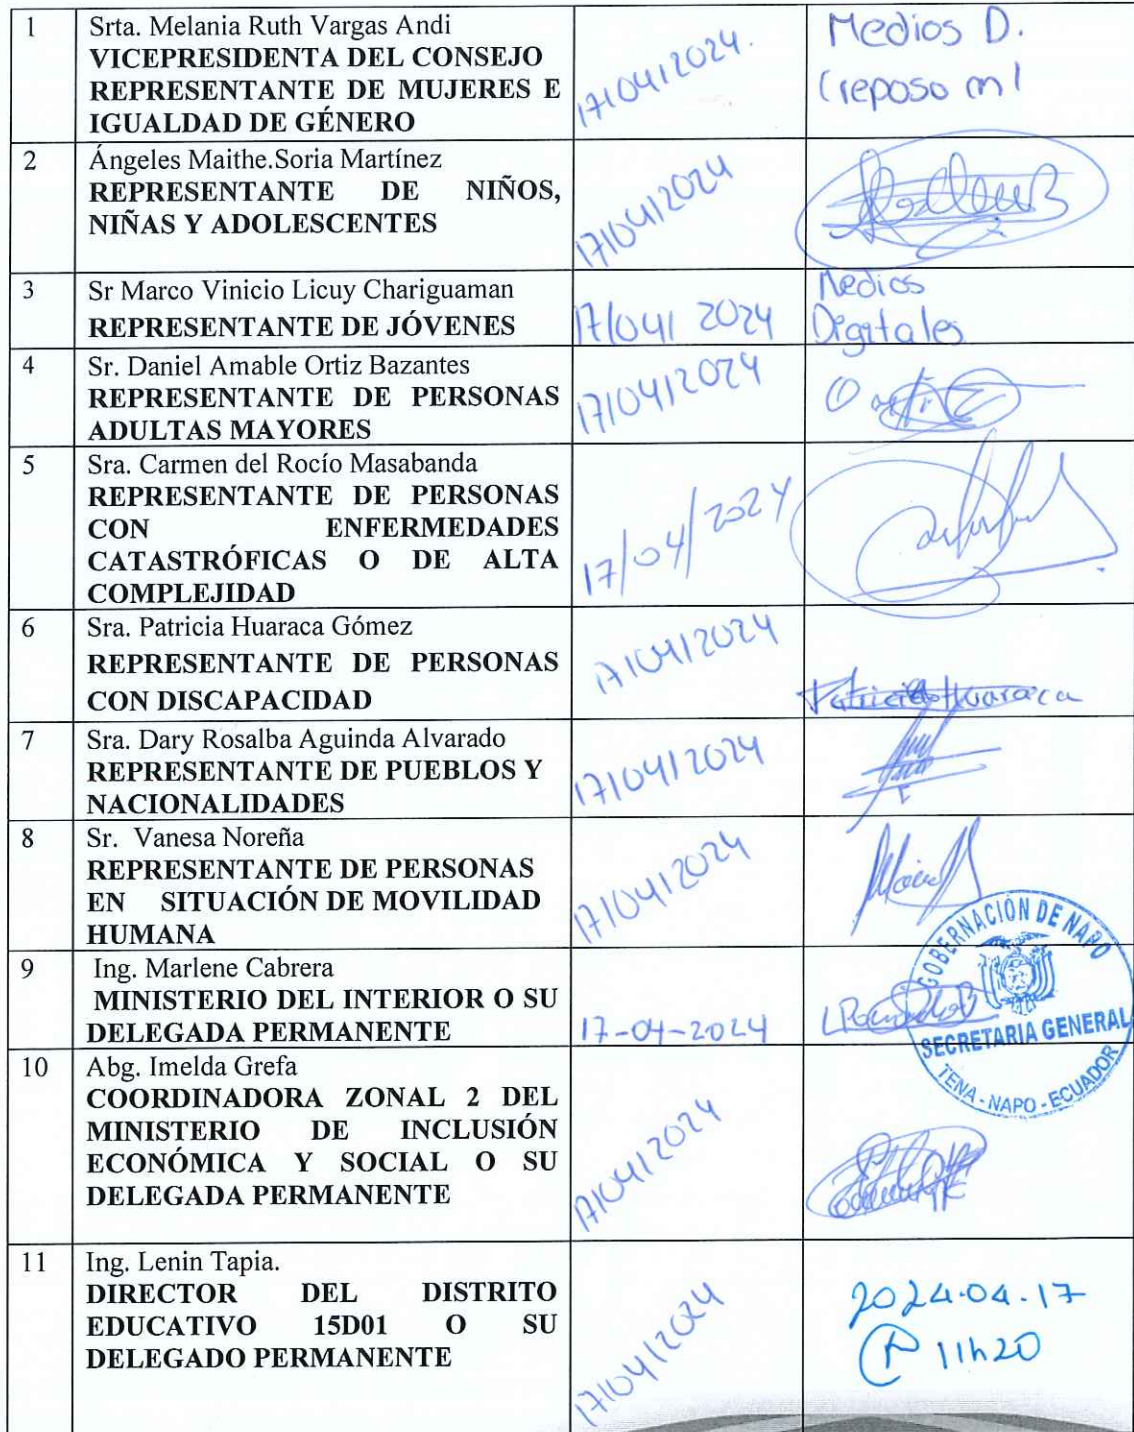 1
Srta. Melania Ruth Vargas Andi
VICEPRESIDENTA DEL CONSEJO
REPRESENTANTE DE MUJERES E
IGUALDAD DE GÉNERO
17/04/2024.
Medios D.
(reposo m)
2
Ángeles Maithe.Soria Martínez
REPRESENTANTE DE NIÑOS,
NIÑAS Y ADOLESCENTES
17/04/2024
3
Sr Marco Vinicio Licuy Chariguaman
REPRESENTANTE DE JÓVENES
17/04/ 2024
Medios
Digitales
4
Sr. Daniel Amable Ortiz Bazantes
REPRESENTANTE DE PERSONAS
ADULTAS MAYORES
17/04/2024
5
Sra. Carmen del Rocío Masabanda
REPRESENTANTE DE PERSONAS
CON ENFERMEDADES
CATASTRÓFICAS O DE ALTA
COMPLEJIDAD
17/04/2024
6
Sra. Patricia Huaraca Gómez
REPRESENTANTE DE PERSONAS
CON DISCAPACIDAD
17/04/2024
Patricia Huaraca
7
Sra. Dary Rosalba Aguinda Alvarado
REPRESENTANTE DE PUEBLOS Y
NACIONALIDADES
17/04/2024
8
Sr. Vanesa Noreña
REPRESENTANTE DE PERSONAS
EN SITUACIÓN DE MOVILIDAD
HUMANA
17/04/2024
9
Ing. Marlene Cabrera
MINISTERIO DEL INTERIOR O SU
DELEGADA PERMANENTE
17-04-2024
GOBERNACIÓN DE NAPO
SECRETARIA GENERAL
TENA - NAPO - ECUADOR
10
Abg. Imelda Grefa
COORDINADORA ZONAL 2 DEL
MINISTERIO DE INCLUSIÓN
ECONÓMICA Y SOCIAL O SU
DELEGADA PERMANENTE
17/04/2024
11
Ing. Lenin Tapia.
DIRECTOR DEL DISTRITO
EDUCATIVO 15D01 O SU
DELEGADO PERMANENTE
17/04/2024
2024.04.17
11h20